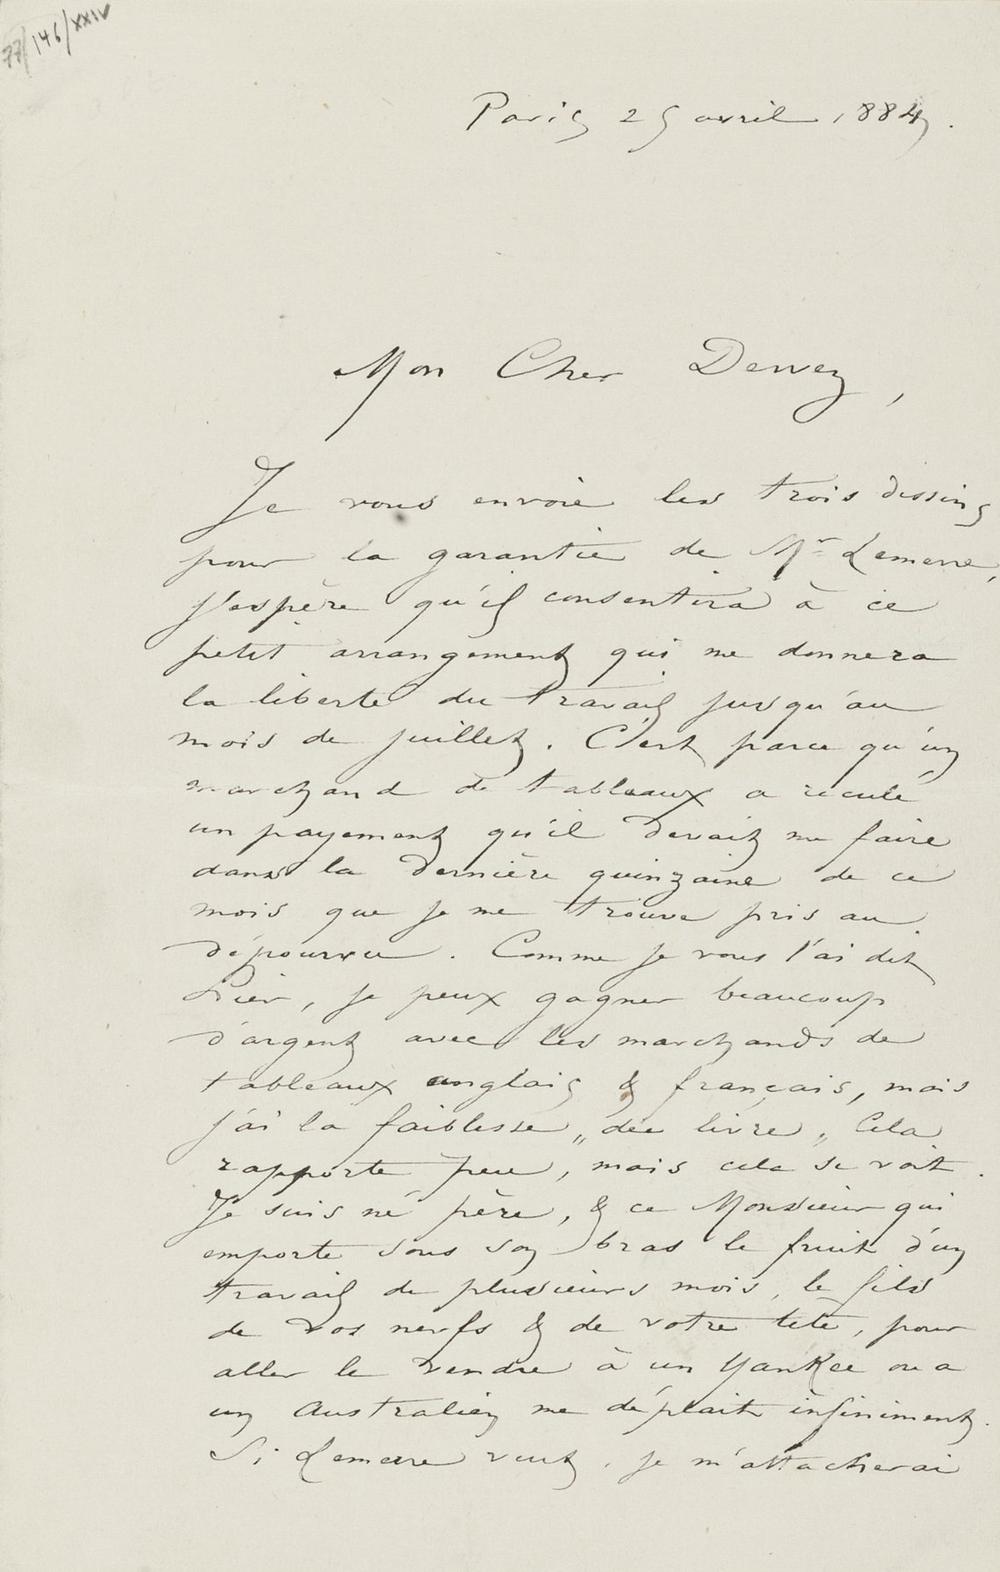 77/146/XXIV
Paris 25 avril 1884.
Mon Cher Dewez,
Je vous envoie les trois dessins
pour la garantie de Mr Lemerre,
j'espère qu'il consentira à ce
petit arrangement qui me donnera
la liberté du travail jusqu'au
mois de juillet. C'est parce qu'un
marchand de tableaux a reculé
un payement qu'il devait me faire
dans la dernière quinzaine de ce
mois que je me trouve pris au
dépourvu. Comme je vous l'ai dit
hier, je peux gagner beaucoup
d'argent avec les marchands de
tableaux anglais & français, mais
j'ai la faiblesse „du livre„ Cela
rapporte peu, mais cela se voit.
Je suis né père, & ce Monsieur qui
emporte sous son bras le fruit d'un
travail de plusieurs mois, le fils
de vos nerfs & de votre tête, pour
aller le vendre à un Yankee ou a
un Australien me déplait infiniment.
Si Lemerre veut, je m'attacherai